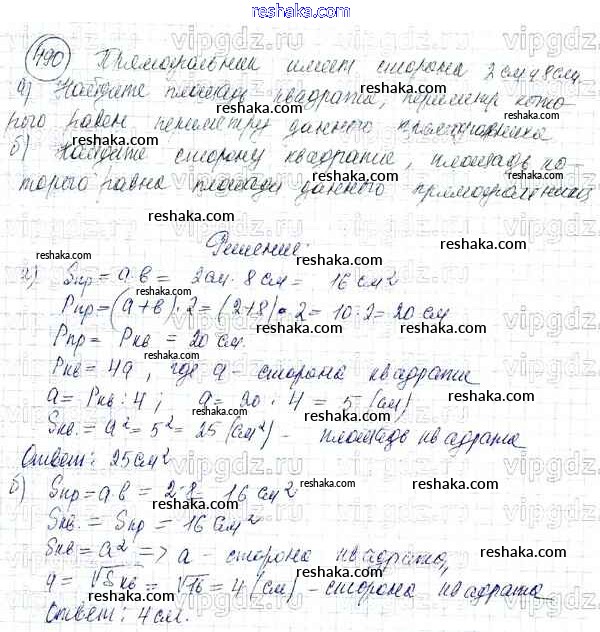 reshaka.com
490 Прямоугольник имеет стороны 2 см и 8 см
а) Найдите площадь квадрата, периметр кото-
рого равен периметру данного прямоугольника
б) Найдите сторону квадрата, площадь ко-
торого равна площади данного прямоугольника
Решение:
а) Sпр = a·в = 2см · 8 см = 16 см²
Pпр = (a+в)·2 = (2+8)·2 = 10·2 = 20 см
Pпр = Pкв = 20 см.
Pкв = 4a, где a - сторона квадрата
a = Pкв : 4; a = 20 : 4 = 5 (см)
Sкв. = a² = 5² = 25 (см²) - площадь квадрата
Ответ: 25 см²
б) Sпр = a·в = 2·8 = 16 см²
Sкв. = Sпр = 16 см²
Sкв = a² => a - сторона квадрата,
a = √Sкв = √16 = 4 (см) - сторона квадрата
Ответ: 4 см.